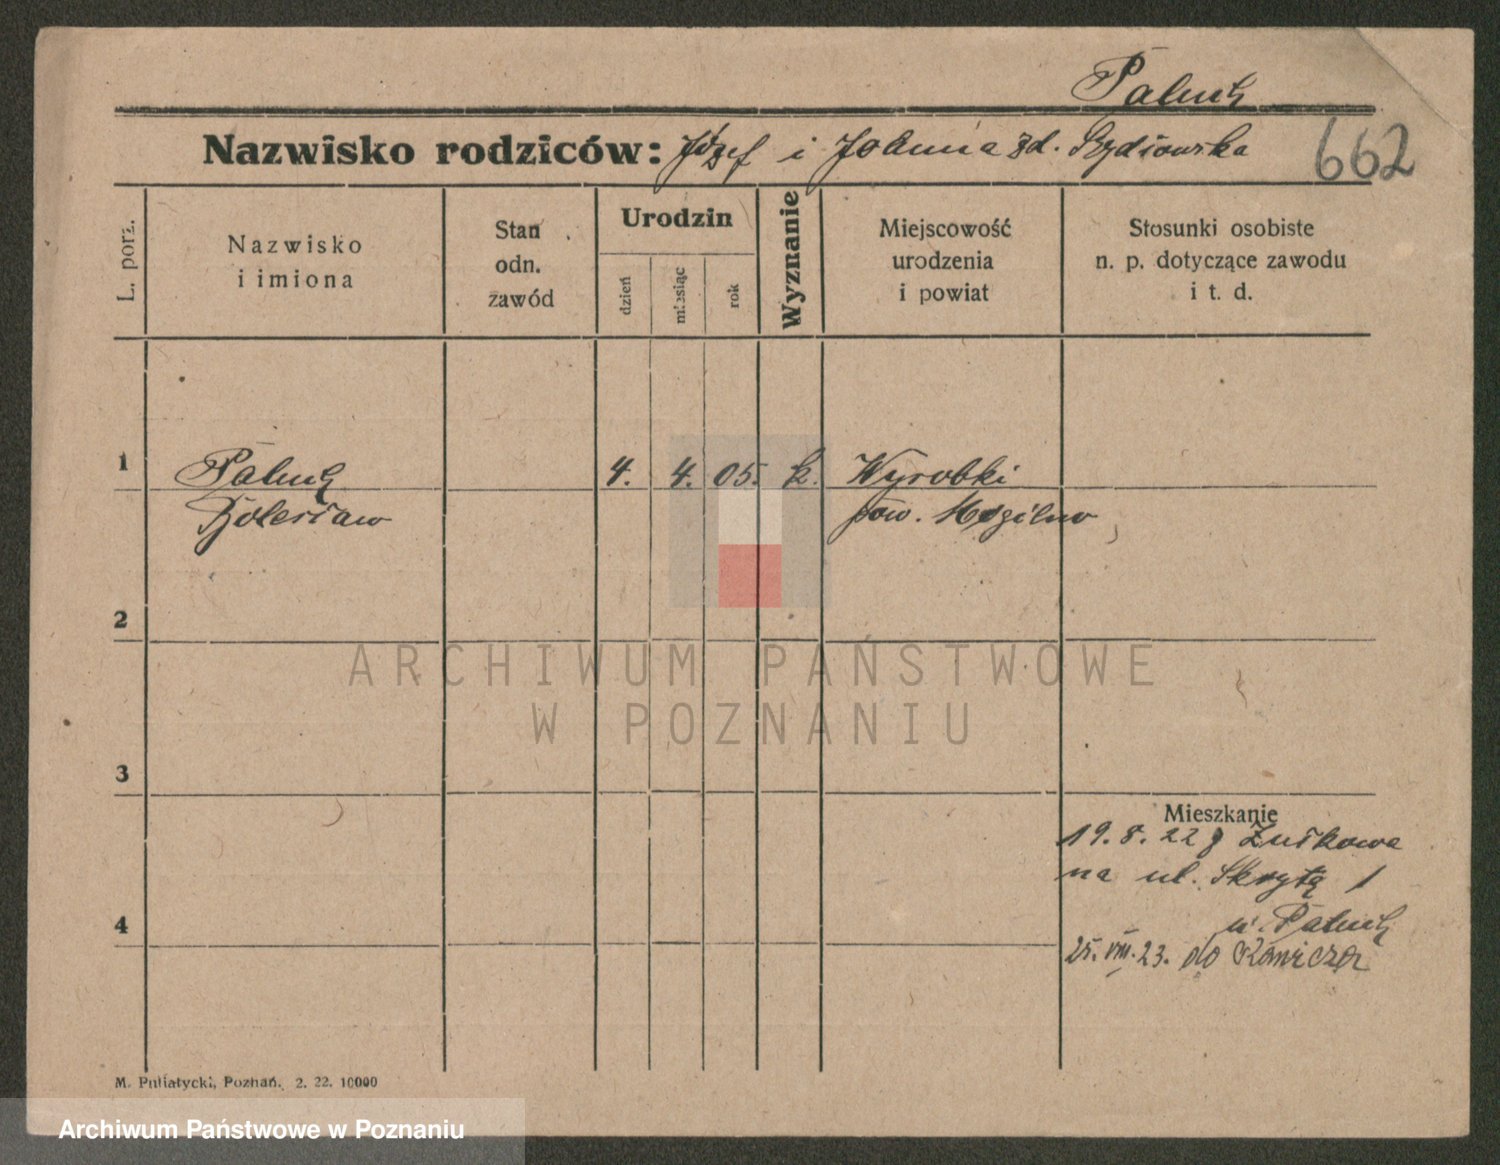 Paluch
Nazwisko rodziców: Józef i Joanna zd. Szydłowska
662
L. porz.
Nazwisko
i imiona
Stan
odn.
zawód
Urodzin
dzień
miesiąc
rok
Wyznanie
Miejscowość
urodzenia
i powiat
Stosunki osobiste
n. p. dotyczące zawodu
i t. d.
1
Paluch 4. 4. 05. k. Wyrobki
Bolesław pow. Mogilno
2
ARCHIWUM PAŃSTWOWE
W POZNANIU
3
Mieszkanie
19. 8. 22 z
na ul. Skrytą 1
4
u. Paluch
25. VIII. 23. do
M. Putiatycki, Poznań. 2. 22. 10000
Archiwum Państwowe w Poznaniu